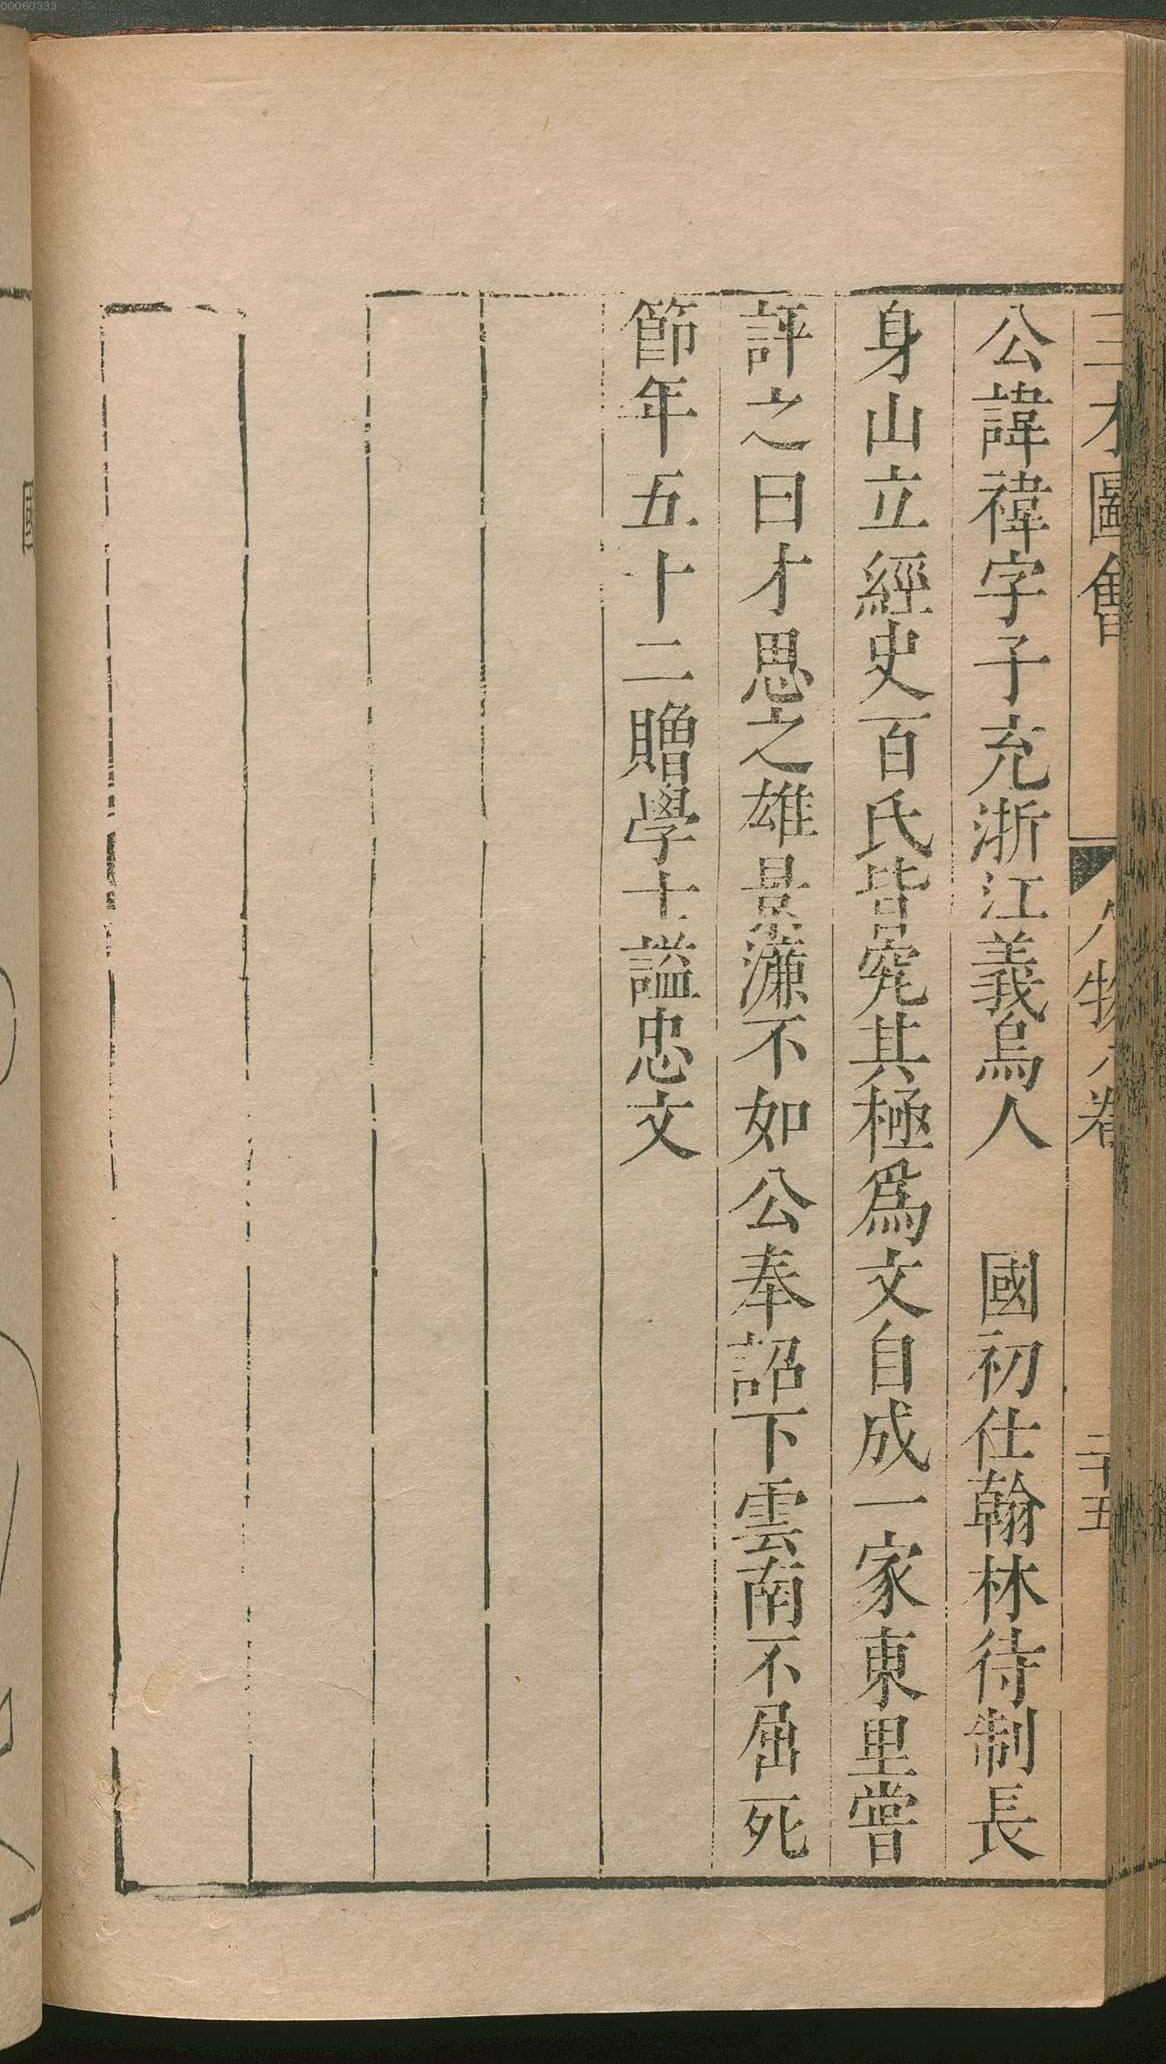 三才圖會 人物八卷 二十五
公諱禕字子充浙江義烏人 國初仕翰林待制長
身山立經史百氏皆究其極爲文自成一家東里嘗
評之曰才思之雄景濂不如公奉詔下雲南不屈死
節年五十二贈學士謚忠文
00060333